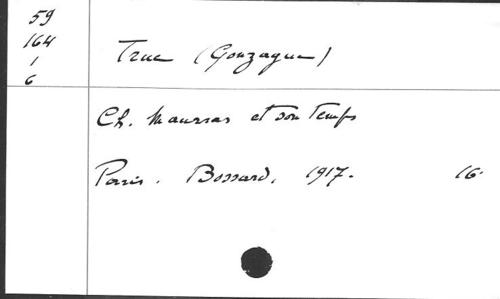 59
164
1
6
Truc (Gonzague)
Ch. Maurras et son Temps
Paris. Bossard, 1917. 16°